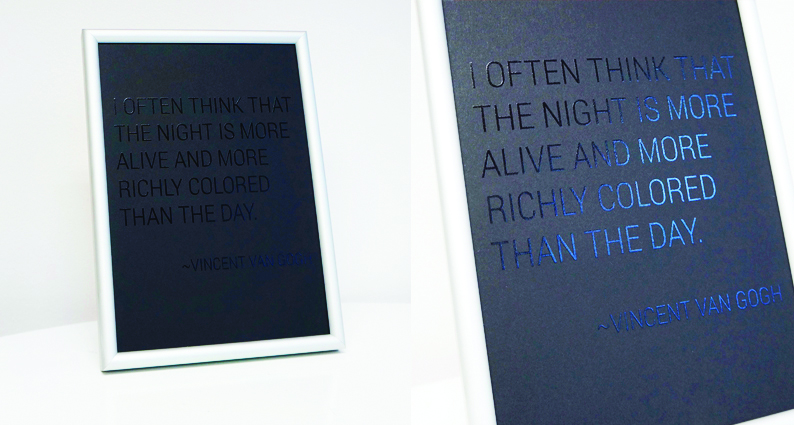 I OFTEN THINK THAT
THE NIGHT IS MORE
ALIVE AND MORE
RICHLY COLORED
THAN THE DAY.
~VINCENT VAN GOGH
I OFTEN THINK THAT
THE NIGHT IS MORE
ALIVE AND MORE
RICHLY COLORED
THAN THE DAY.
~VINCENT VAN GOGH